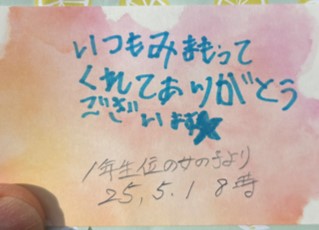 いつもみまもって
くれてありがとう
ございます★
1年生位の女の子より
25,5.1 8時